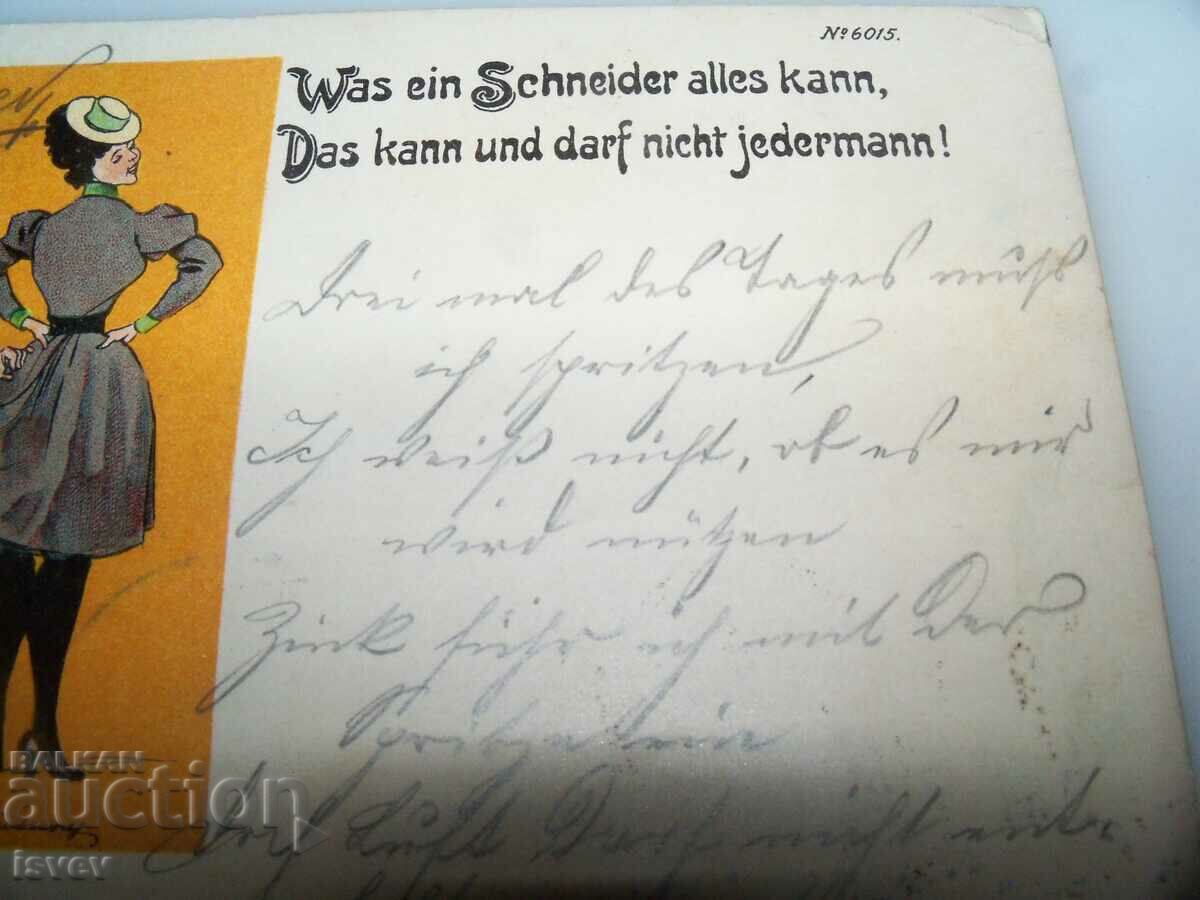 № 6015.
Was ein Schneider alles kann,
Das kann und darf nicht jedermann!
Drei mal des Tages muß
ich spritzen,
Ich weiß nicht, ob es mir
wird nützen
Zink führ ich mit der
Spritze ein
Die Luft darf nicht
BALKAN
auction
isvev